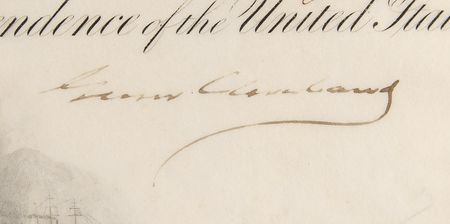 endence of the United Sta
Grover Cleveland